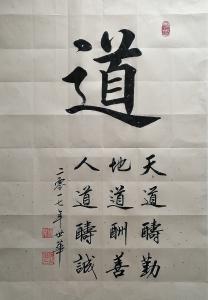 道
天道酬勤
地道酬善
人道酬誠
二零一七年世華